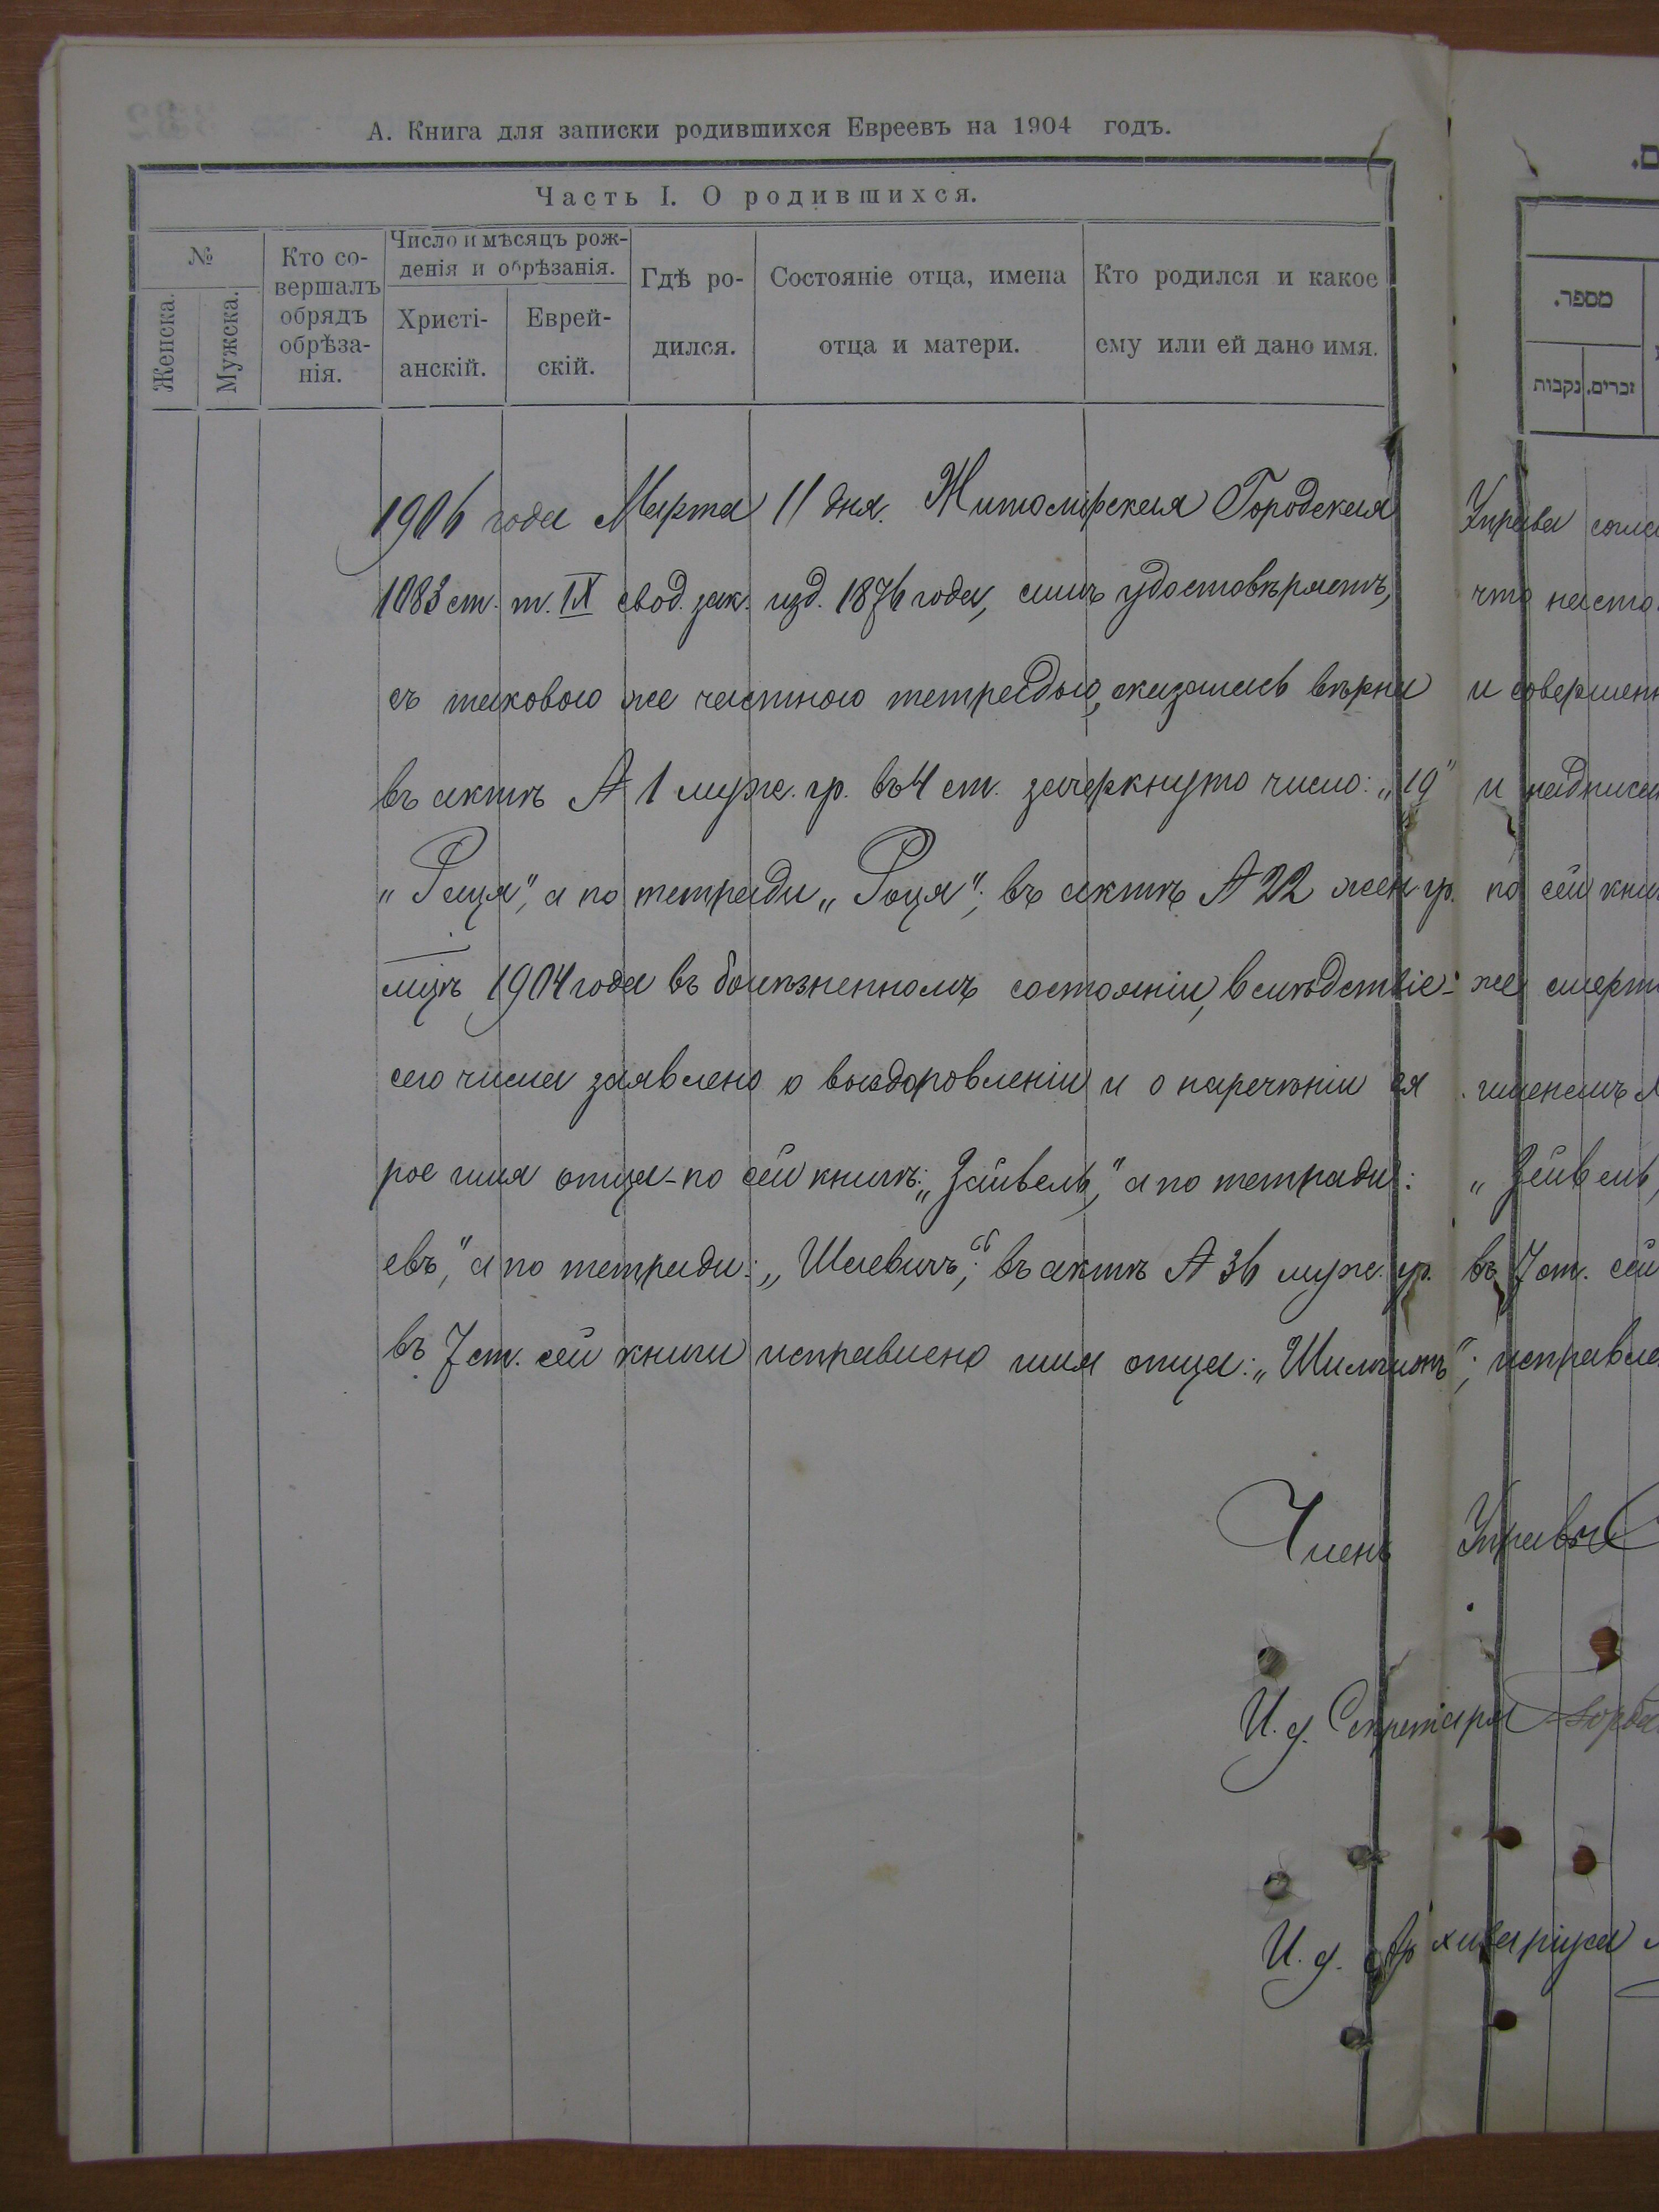 А. Книга для записки родившихся Евреевъ на 1904 годъ.
Часть I. О родившихся.
№
Женска.
Мужска.
Кто со-
вершалъ
обрядъ
обрѣза-
нія.
Число и мѣсяцъ рож-
денія и обрѣзанія.
Христі-
анскій.
Еврей-
скій.
Гдѣ ро-
дился.
Состояніе отца, имена
отца и матери.
Кто родился и какое
ему или ей дано имя.
מספר.
זכרים.
נקבות
1906 года Марта 11 дня. Житомирская Городская Управа согла
1083 ст. т. IX свод. зак. изд. 1876 года, симъ удостовѣряетъ, что насто
съ таковою же частною тетрадью, оказалась вѣрна и совершенн
въ актѣ № 1 муж. гр. въ 4 ст. зачеркнуто число: „19" и надписан
„Рейця", а по тетради „Роця"; въ актѣ № 22 жен. гр. по сей кни
1904 года въ болѣзненномъ состояніи, вслѣдствіе же смерт
сего числа заявлено о выздоровленіи и о нареченіи ея именемъ
рое имя отца - по сей книгѣ: „Зайвель," а по тетради: „Зейвель,
евъ", а по тетради: „Шаевичъ"; въ актѣ № 36 муж. гр. въ 7 ст. сей
въ 7 ст. сей книги исправлено имя отца: исправле
Членъ Управы
И. д. Секретаря
И. д. Архиваріуса